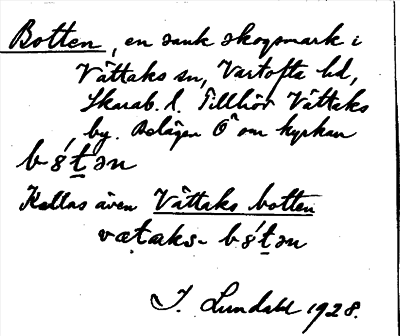 Botten, en sank skogsmark i
Våttaks sn, Vartofta hd,
Skarab. l. Tillhör Våttaks
by. Belägen Ö om kyrkan
Kallas även Våttaks botten
I. Lundahl 1928.